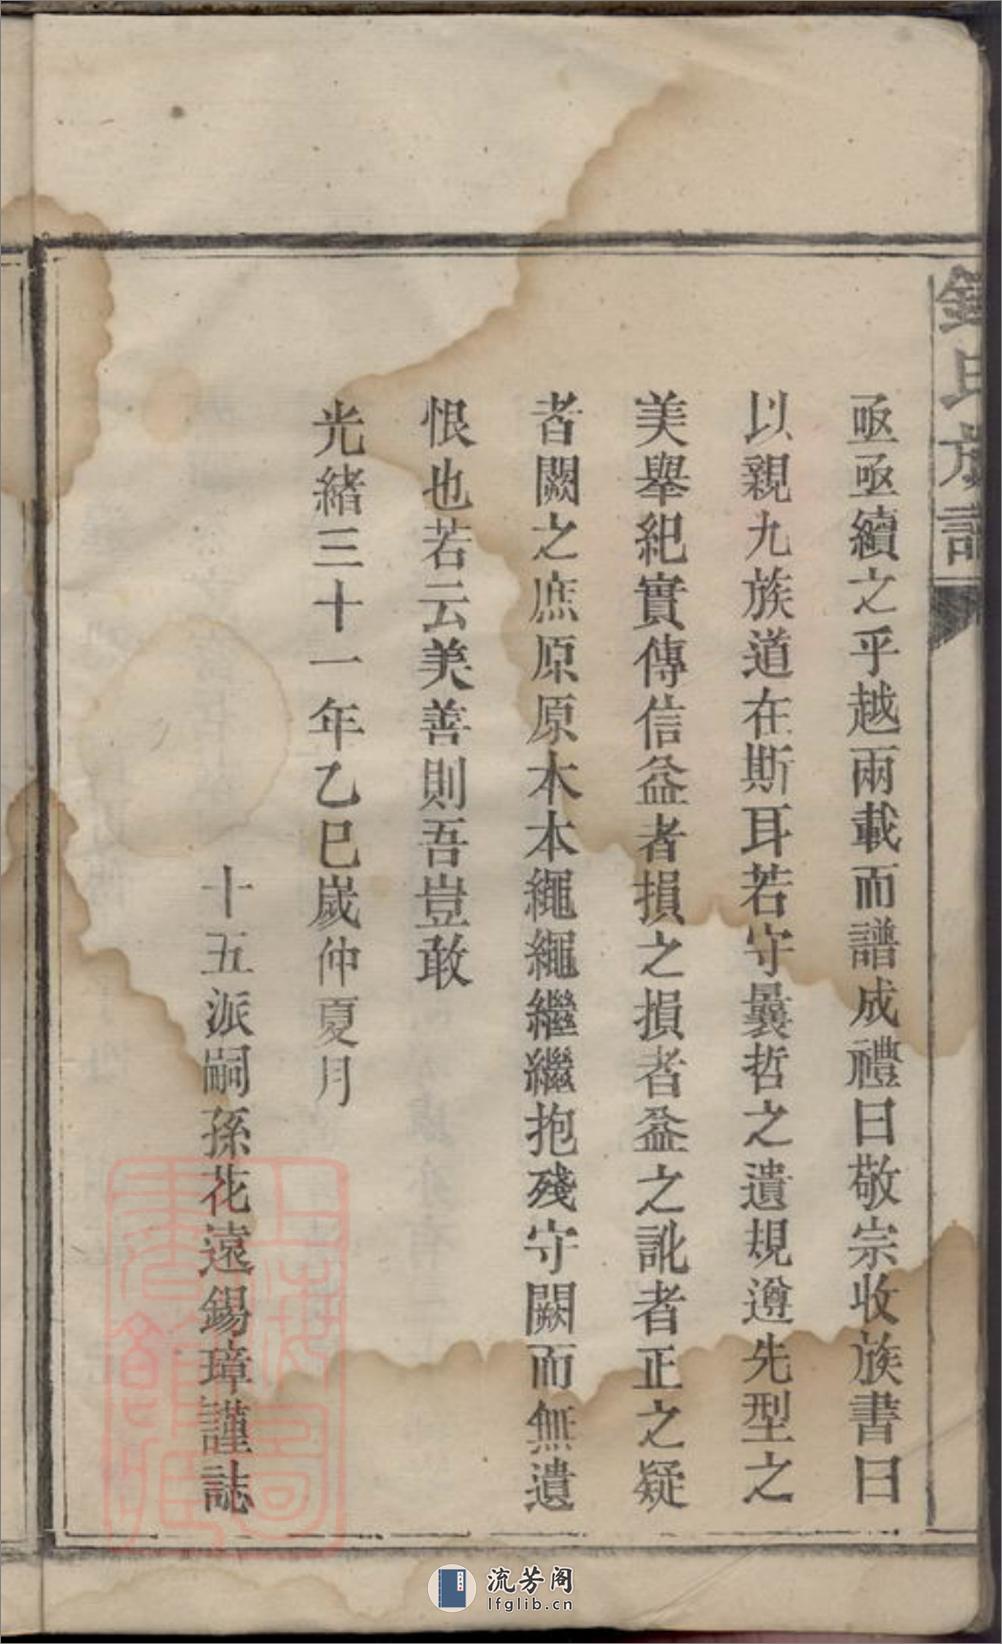 鍾氏族譜
亟亟續之乎越兩載而譜成禮曰敬宗收族書曰
以親九族道在斯耳若守曩哲之遺規遵先型之
美舉紀實傳信益者損之損者益之訛者正之疑
者闕之庶原原本本繩繩繼繼抱殘守闕而無遺
恨也若云美善則吾豈敢
光緒三十一年乙巳歲仲夏月
十五派嗣孫花遠錫璋謹誌
上海圖書館藏
流芳阁
lfglib.cn